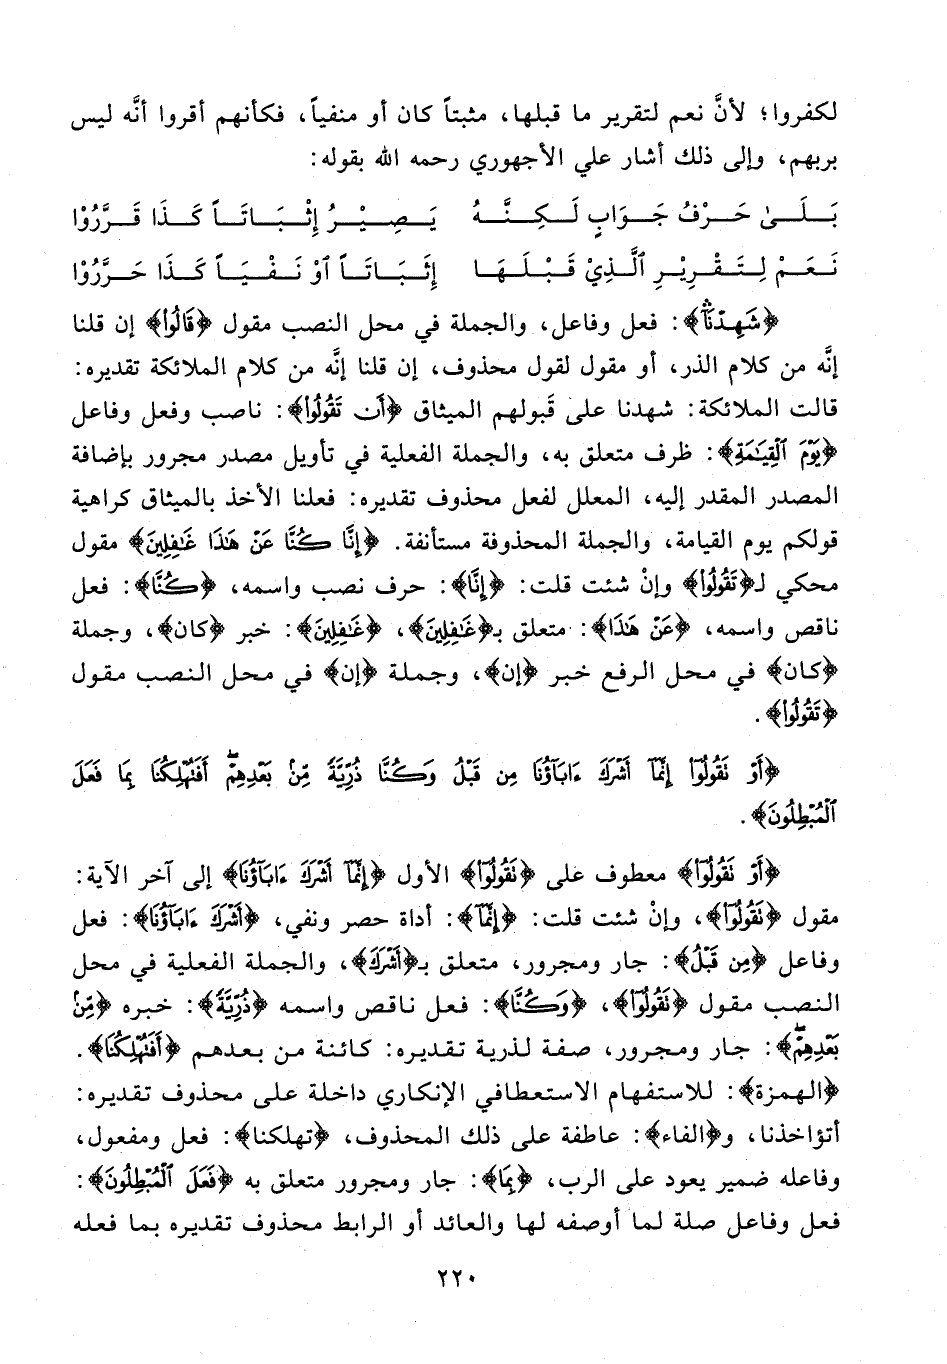 لكفروا؛ لأنَّ نعم لتقرير ما قبلها، مثبتاً كان أو منفياً، فكأنهم أقروا أنَّه ليس
بربهم، وإلى ذلك أشار علي الأجهوري رحمه الله بقوله:
بَـلَـىٰ حَـرْفُ جَـوَابٍ لَـكِـنَّـهُ يَـصِـيْـرُ إِثْـبَـاتَـاً كَـذَا قَـرَّرُوْا
نَـعَـمْ لِـتَـقْـرِيْـرِ ٱلَّـذِيْ قَـبْـلَـهَـا إِثَـبَـاتَـاً أَوْ نَـفْـيَـاً كَـذَا حَـرَّرُوْا
﴿شَهِدْنَآۛ﴾: فعل وفاعل، والجملة في محل النصب مقول ﴿قَالُوا۟﴾ إن قلنا
إنَّه من كلام الذر، أو مقول لقول محذوف، إن قلنا إنَّه من كلام الملائكة تقديره:
قالت الملائكة: شهدنا على قَبولهم الميثاق ﴿أَن تَقُولُوا۟﴾: ناصب وفعل وفاعل
﴿يَوْمَ ٱلْقِيَـٰمَةِ﴾: ظرف متعلق به، والجملة الفعلية في تأويل مصدر مجرور بإضافة
المصدر المقدر إليه، المعلل لفعل محذوف تقديره: فعلنا الأخذ بالميثاق كراهية
قولكم يوم القيامة، والجملة المحذوفة مستأنفة. ﴿إِنَّا كُنَّا عَنْ هَـٰذَا غَـٰفِلِينَ﴾ مقول
محكي لـ﴿تَقُولُوا۟﴾ وإنْ شئت قلت: ﴿إِنَّا﴾: حرف نصب واسمه، ﴿كُنَّا﴾: فعل
ناقص واسمه، ﴿عَنْ هَـٰذَا﴾: متعلق بـ﴿غَـٰفِلِينَ﴾، ﴿غَـٰفِلِينَ﴾: خبر ﴿كان﴾، وجملة
﴿كان﴾ في محل الرفع خبر ﴿إن﴾، وجملة ﴿إن﴾ في محل النصب مقول
﴿تَقُولُوا۟﴾.
﴿أَوْ نَقُولُوٓا۟ إِنَّمَآ أَشْرَكَ ءَابَآؤُنَا مِن قَبْلُ وَكُنَّا ذُرِّيَّةً مِّنۢ بَعْدِهِمْۖ أَفَتُهْلِكُنَا بِمَا فَعَلَ
ٱلْمُبْطِلُونَ﴾.
﴿أَوْ نَقُولُوٓا۟﴾ معطوف على ﴿نَقُولُوٓا۟﴾ الأول ﴿إِنَّمَآ أَشْرَكَ ءَابَآؤُنَا﴾ إلى آخر الآية:
مقول ﴿نَقُولُوٓا۟﴾، وإنْ شئت قلت: ﴿إِنَّمَآ﴾: أداة حصر ونفي، ﴿أَشْرَكَ ءَابَآؤُنَا﴾: فعل
وفاعل ﴿مِن قَبْلُ﴾: جار ومجرور، متعلق بـ﴿أَشْرَكَ﴾، والجملة الفعلية في محل
النصب مقول ﴿نَقُولُوٓا۟﴾، ﴿وَكُنَّا﴾: فعل ناقص واسمه ﴿ذُرِّيَّةً﴾: خبره ﴿مِّنۢ
بَعْدِهِمْۖ﴾: جار ومجرور، صفة لذرية تقديره: كائنة من بعدهم ﴿أَفَتُهْلِكُنَا﴾.
﴿الهمزة﴾: للاستفهام الاستعطافي الإنكاري داخلة على محذوف تقديره:
أتؤاخذنا، و﴿الفاء﴾: عاطفة على ذلك المحذوف، ﴿تهلكنا﴾: فعل ومفعول،
وفاعله ضمير يعود على الرب، ﴿بِمَا﴾: جار ومجرور متعلق به ﴿فَعَلَ ٱلْمُبْطِلُونَ﴾:
فعل وفاعل صلة لما أوصفه لها والعائد أو الرابط محذوف تقديره بما فعله
٢٢٠